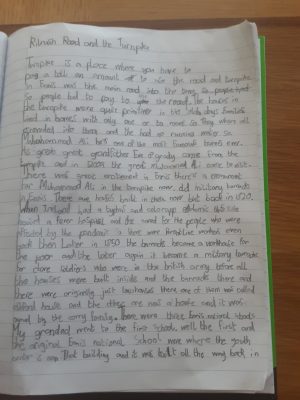 Road and the Turnpike
Turnpike is a place where you have to
pay a toll an amount to use the road and turnpike
in Ennis was the main road into the town
So people had to pay to use the road. The houses in
the turnpike were quite primitive in the olden days families
lived in homes with only one or to room. So they where all
into there and the had no running water. So
Muhammad Ali he's one of the most famous boxers ever.
His great great grandfather Eve o'grady came from the
turnpike and in 2009 the great Muhammad Ali came to visit.
There was great excitement in Ennis there's a monument
for Muhammad Ali in the turnpike now. old military barracks
in Ennis. There are houses built in there now but back in 1820
When Ireland had a typhus and epidemic this time
housed a fever hospital and the cared for the people who were
affected by the pandemic a there were frontline workers even
back then. Later in 1850 the barracks became a workhouse for
the poor and the later again it became a military barracks
for more soldiers who were in the british army before all
the houses were built inside and the barracks there and
there were originally just there one of them was called
clifford house and the other are now a home and it was
owned by the family. There were three Ennis national schools
My grandad went to the first school, well the first and
the original Ennis national School were where the youth
centre is now. That building and it was built all the way back in